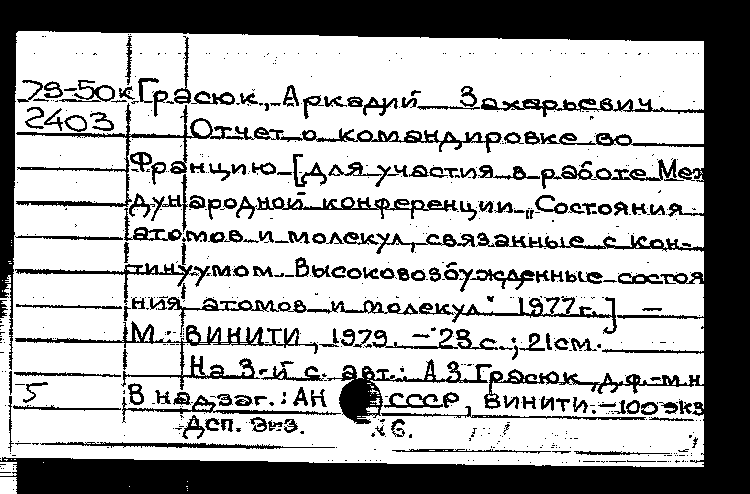 79-50к Грасюк, Аркадий Захарьевич.
2403 Отчет о командировке во
Францию [для участия в работе Меж
дународной конференции „Состояния
атомов и молекул, связанные с кон-
тинуумом. Высоковозбужденные состоя
ния атомов и молекул". 1977г.] —
М.: ВИНИТИ, 1979. - 28 с.; 21см.
На 3-й с. авт.: А.З. Грасюк, д.ф.-м.н
5 В надзаг.: АН СССР, ВИНИТИ. - 100 экз
Дсп. Экз. №6.